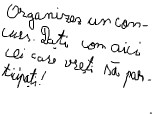 Organizez un con-
curs. Dați com aici
cei care vreți să par-
tiipați!